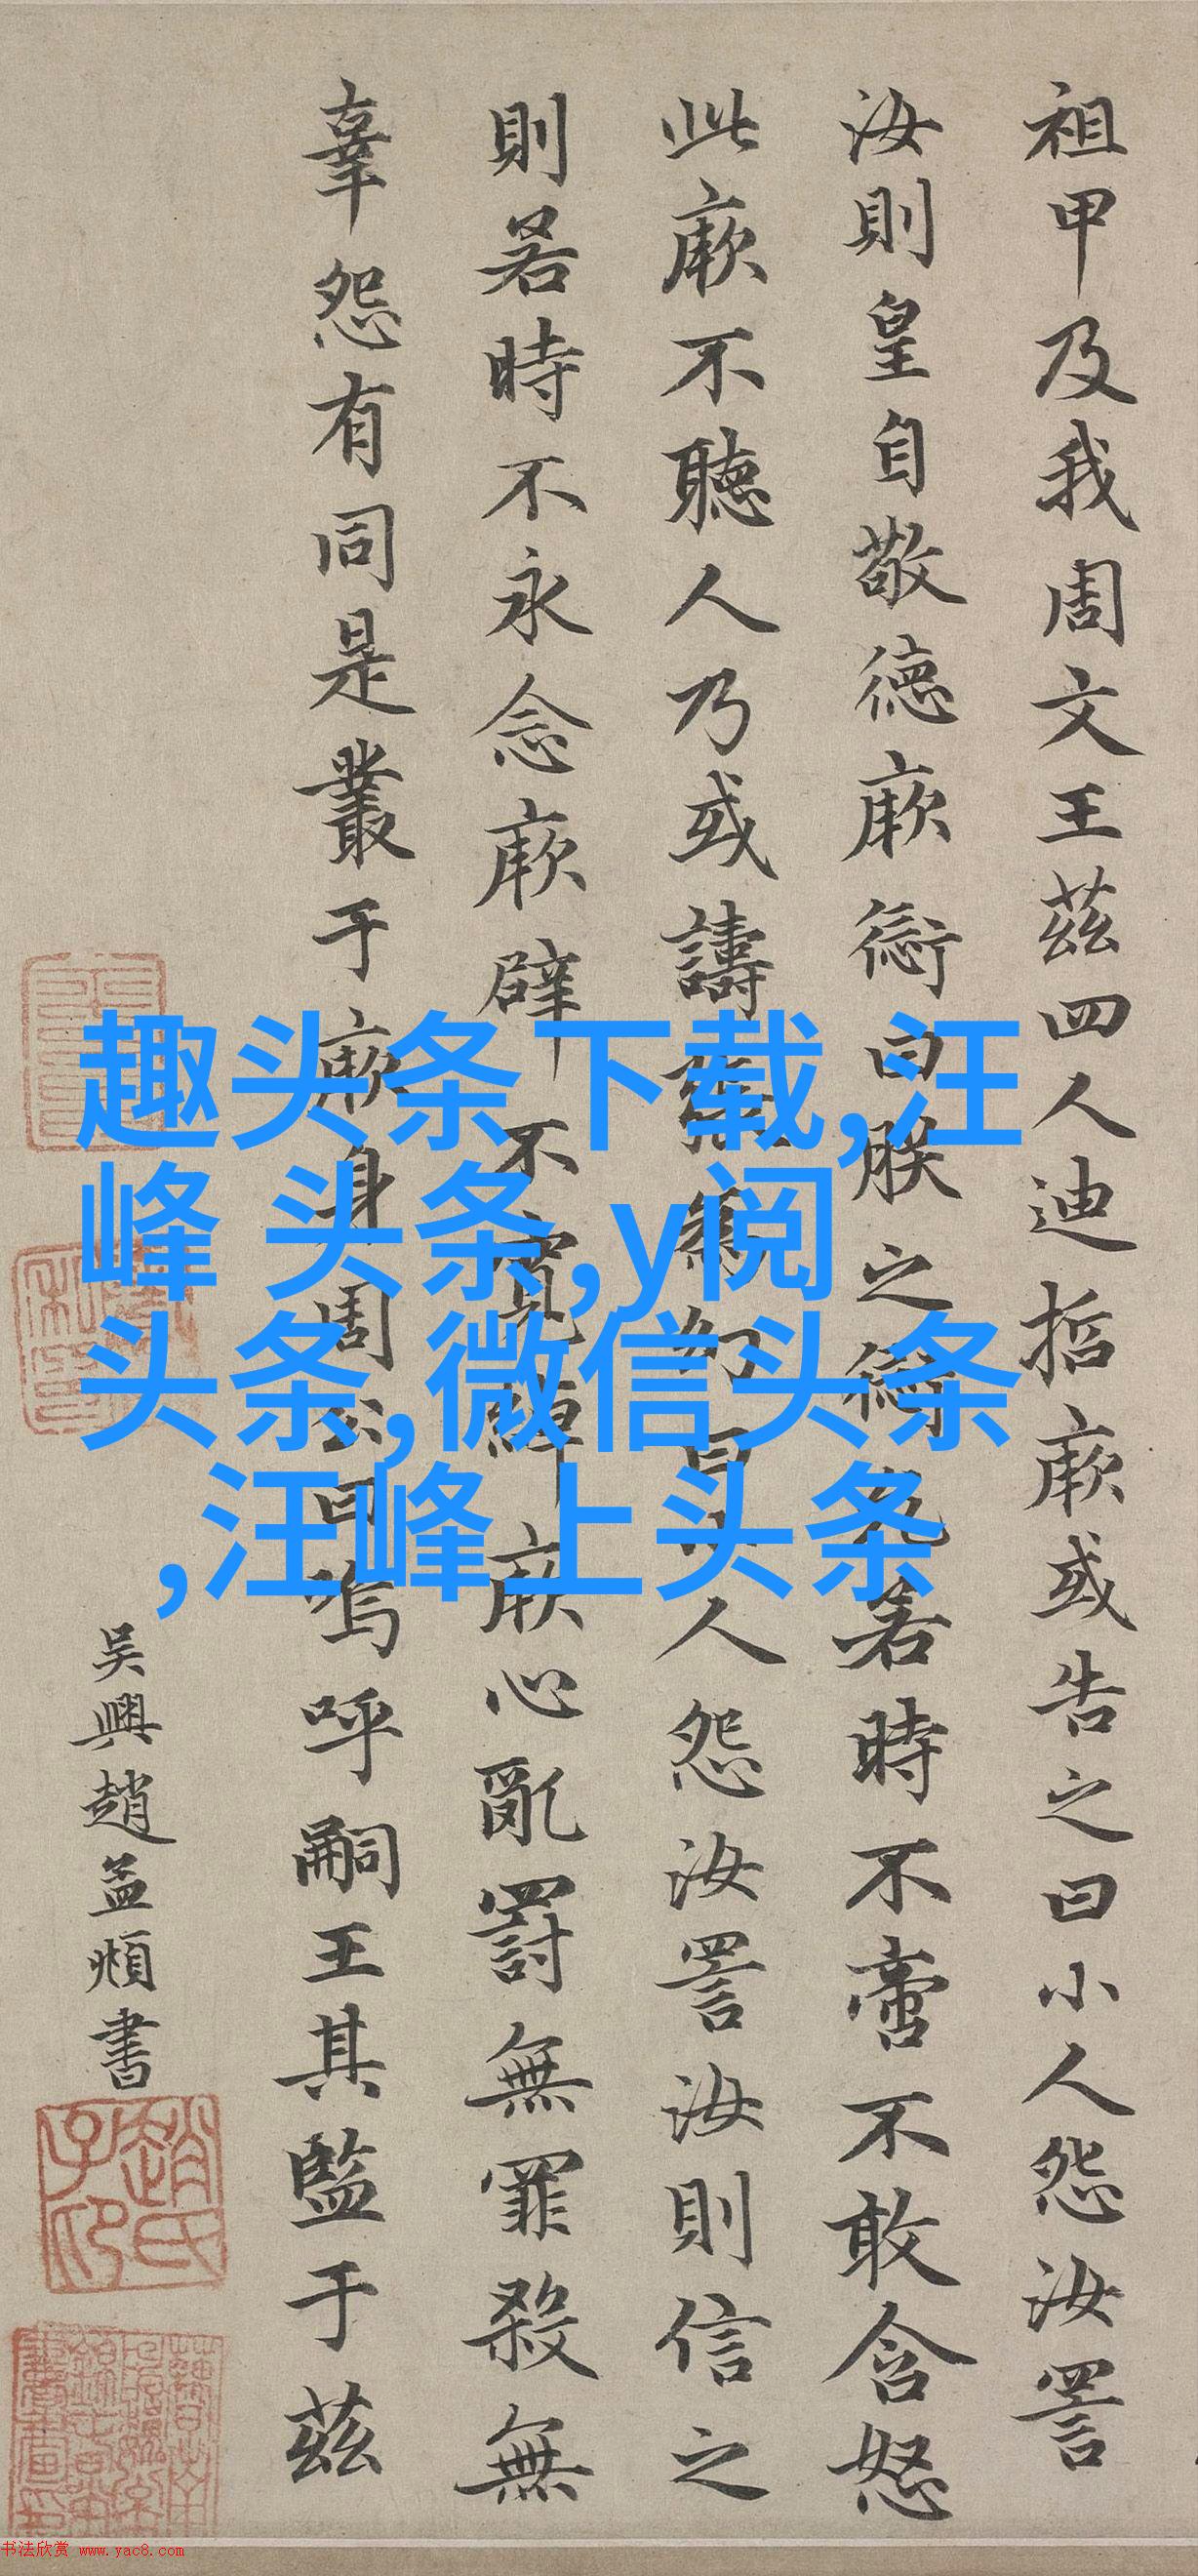 祖甲及我周文王茲四人迪哲厥或告之曰小人怨汝詈
汝則皇自敬德厥愆曰朕之愆允若時不啻不敢含怒
此厥不聽人乃或譸張為幻曰小人怨汝詈汝則信之
則若時不永念厥辟不寬綽厥心亂罰無罪殺無
辜怨有同是叢于厥身周公曰嗚呼嗣王其監于茲
吳興趙孟頫書
趙氏子昂
趣头条下载,汪
峰 头条,y阅
头条,微信头条
,汪峰上头条
书法欣赏 www.yac8.com